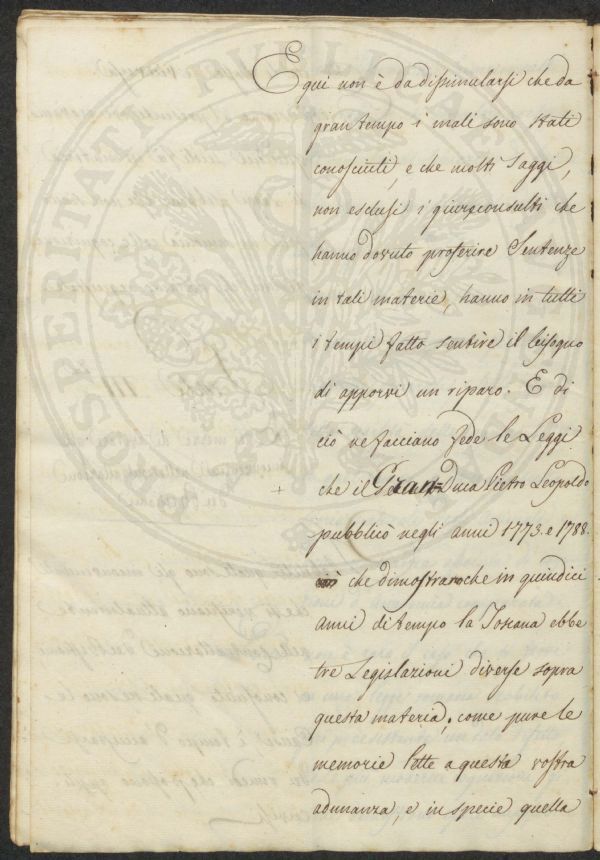 E qui non è da dissimularsi che da
gran tempo i mali sono stati
conosciuti, e che molti Saggi,
non esclusi i giureconsulti che
hanno dovuto proferire Sentenze
in tali materie, hanno in tutti
i tempi fatto sentire il bisogno
di apporvi un riparo. E di
ciò ne facciano fede le Leggi
che il Gran-Duca Pietro Leopoldo
pubblicò negli anni 1773. e 1788.
che dimostraro che in quindici
anni di tempo la Toscana ebbe
tre Legislazioni diverse sopra
questa materia, come pure le
memorie lette a questa vostra
adunanza, e in specie quella